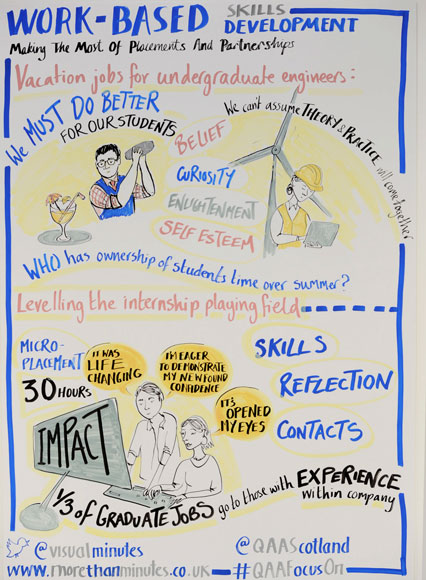 WORK-BASED SKILLS DEVELOPMENT
Making The Most Of Placements And Partnerships
Vacation jobs for undergraduate engineers:
We MUST DO BETTER
FOR OUR STUDENTS
BELIEF
CURIOSITY
ENLIGHTENMENT
SELF ESTEEM
We can't assume THEORY & PRACTICE will come together
WHO has ownership of students time over summer?
Levelling the internship playing field
MICRO-
PLACEMENT
30 HOURS
IT WAS
LIFE
CHANGING
I'M EAGER
TO DEMONSTRATE
MY NEWFOUND
CONFIDENCE
IT'S
OPENED
MY EYES
SKILLS
REFLECTION
CONTACTS
IMPACT
1/3 of GRADUATE JOBS go to those with EXPERIENCE
within company
@visualminutes
@QAAScotland
www.morethanminutes.co.uk
#QAAFocusOn